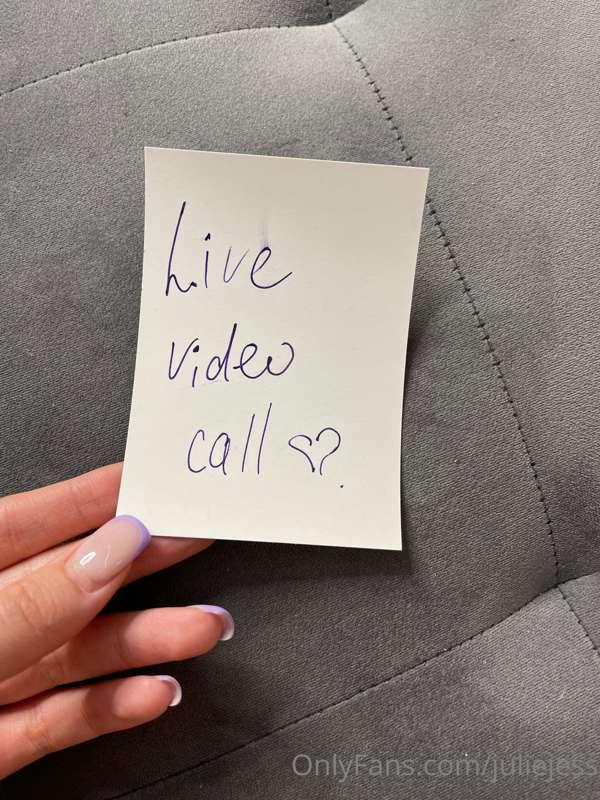 Live
video
call ♡.
OnlyFans.com/juliejess